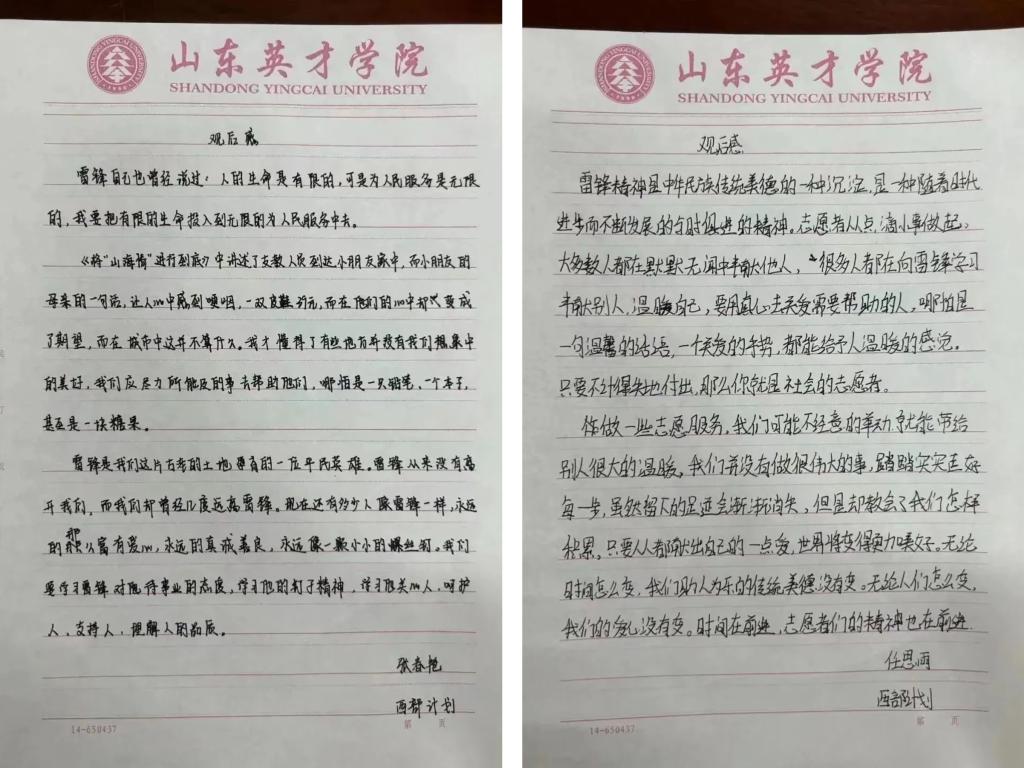 山东英才学院
SHANDONG YINGCAI UNIVERSITY
观后感
雷锋自己也曾经说过：人的生命是有限的，可是为人民服务是无限
的，我要把有限的生命投入到无限的为人民服务中去。
《将“山海情”进行到底》中讲述了支教人员到达小朋友家中，而小朋友的
母亲的一句话，让人心中感到哽咽，一双皮鞋35元，而在他们的心中却变成
了期望，而在城市中这并不算什么。我才懂得了有些地方并没有我们想象中
的美好，我们应尽力所能及的事去帮助他们，哪怕是一只铅笔、一个本子，
甚至是一块糖果。
雷锋是我们这片古老的土地里的一位平民英雄。雷锋从来没有离
开我们，而我们却曾经几度远离雷锋。现在还有多少人像雷锋一样，永远
的那么富有爱心，永远的真诚善良，永远像一颗小小的螺丝钉。我们
要学习雷锋对待事业的态度，学习他的钉子精神，学习他关心人、呵护
人、支持人、理解人的品质。
张春艳
西部计划
14-650437
第 页
山东英才学院
SHANDONG YINGCAI UNIVERSITY
观后感
雷锋精神是中华民族传统美德的一种沉淀，是一种随着时代
进步而不断发展的与时俱进的精神。志愿者从点滴小事做起，
大多数人都在默默无闻中奉献他人，“很多人都在向雷锋学习
奉献别人，温暖自己，要用真心去关爱需要帮助的人，哪怕是
一句温馨的话语，一个关爱的手势，都能给予人温暖的感觉。
只要不计得失地付出，那么你就是社会的志愿者。
你做一些志愿服务，我们可能不经意的举动就能带给
别人很大的温暖。我们并没有做很伟大的事，踏踏实实走好
每一步，虽然留下的足迹会渐渐消失，但是却教会了我们怎样
积累。只要人人都献出自己的一点爱，世界将变得更加美好。无论
时间怎么变，我们助人为乐的传统美德没有变。无论人们怎么变，
我们的爱心没有变。时间在前进，志愿者们的精神也在前进
任思雨
西部计划
14-650437
第 页